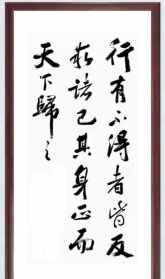 行有不得者皆反
求諸己其身正而
天下歸之